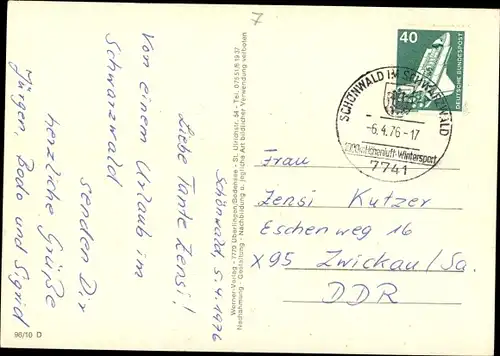 7
Schönwald, 5.4.1976
Liebe Tante Zensi!
Von einem Urlaub im
Schwarzwald
senden Dir
herzliche Grüße
Jürgen, Bodo und Sigrid
96/10 D
Werner-Verlag - 7770 Überlingen/Bodensee - St. Ulrichstr. 54 - Tel. 07551/61937
Nachahmung - Gestaltung - Nachbildung u. jegliche Art bildlicher Verwendung verboten
40
DEUTSCHE BUNDESPOST
SCHÖNWALD IM SCHWARZWALD
-6.4.76-17
Höhenluft-Wintersport
7741
Frau
Zensi Kutzer
Eschenweg 16
X95 Zwickau/Sa.
DDR